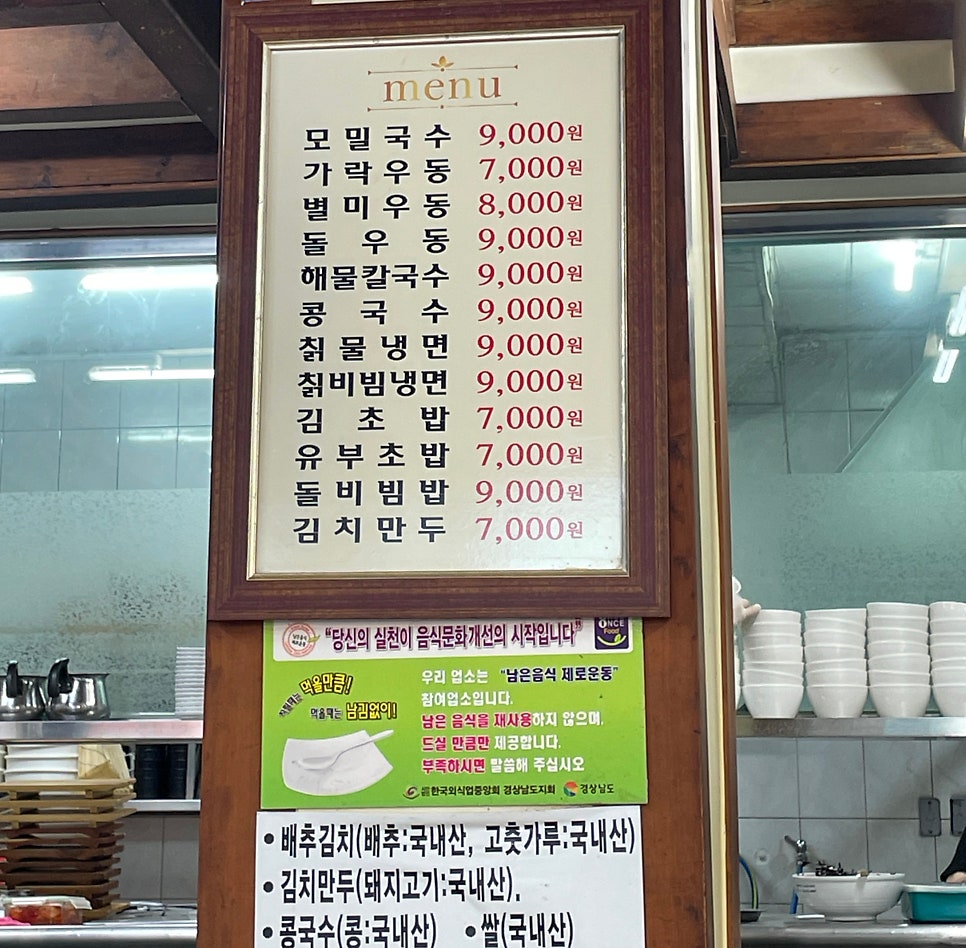 menu
모밀국수 9,000원
가락우동 7,000원
별미우동 8,000원
돌우동 9,000원
해물칼국수 9,000원
콩국수 9,000원
칡물냉면 9,000원
칡비빔냉면 9,000원
김초밥 7,000원
유부초밥 7,000원
돌비빔밥 9,000원
김치만두 7,000원
"당신의 실천이 음식문화개선의 시작입니다"
ONCE
Food
먹을만큼!
먹을때는 남김없이!
우리 업소는 "남은음식 제로운동"
참여업소입니다.
남은 음식을 재사용하지 않으며,
드실 만큼만 제공합니다.
부족하시면 말씀해 주십시오
한국외식업중앙회 경상남도지회 경상남도
• 배추김치(배추:국내산, 고춧가루:국내산)
• 김치만두(돼지고기:국내산).
• 콩국수(콩:국내산) • 쌀(국내산)